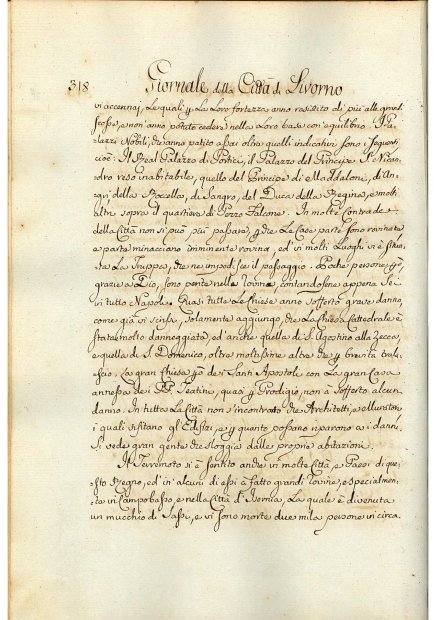 318 Giornale della Città di Livorno
vi accennaj, Le quali p La Loro fortezza anno resistito di più alle grandi
scosse, e non anno potuto cedere nella Loro base con equilibrio. I Pa-
lazzi Nobili, che anno patito assai oltre quelli indicativi sono i seguenti
cioè: Il Real Palazzo di Portici, il Palazzo del Principe S. Nican-
dro reso inabitabile, quello del Principe di Maddaloni, di An-
gri, della Rocella, di Sangro, del Duca della Regina, e molti
altri sopra il quartiere di Pizzo Falcone. In molte Contrade
della Città non si può più passare, p che Le Case parte sono rovinate
e parte minacciano imminente rovina, ed in molti Luoghi vi è sta-
ta La Truppa, che ne impedisce il passaggio. Poche persone però
grazie a Dio, sono perite nelle rovine, contandosene appena Se-
vi tutto Napoli. Quasi tutte Le Chiese anno sofferto grave danno,
come già vi scrissi, solamente aggiungo, che La Chiesa Cattedrale è
stata molto danneggiata, ed anche quella di S. Agostino alla Zecca,
e quella di S. Domenico, oltre moltissime altre che p brevità trala-
scio. La gran Chiesa però de Santi Apostoli con La gran Casa
annessa dei PP. Teatini, quasi p Prodigio, non à sofferto alcun
danno. In tutta La Città non s'incontrano che Architetti, e Muratori
i quali visitano gl'Edifizi, e p quanto possano riparono ai danni.
Si vede gran gente che sloggia dalle proprie abitazioni.
Il Terremoto si è sentito anche in molte Città e Paesi di que-
sto Regno, ed in alcuni di essi à fatto grandi rovine, e specialmen-
te in Campobasso, e nella Città d'Isernia, La quale è divenuta
un mucchio di Sassi, e vi sono morte due mila persone in circa.